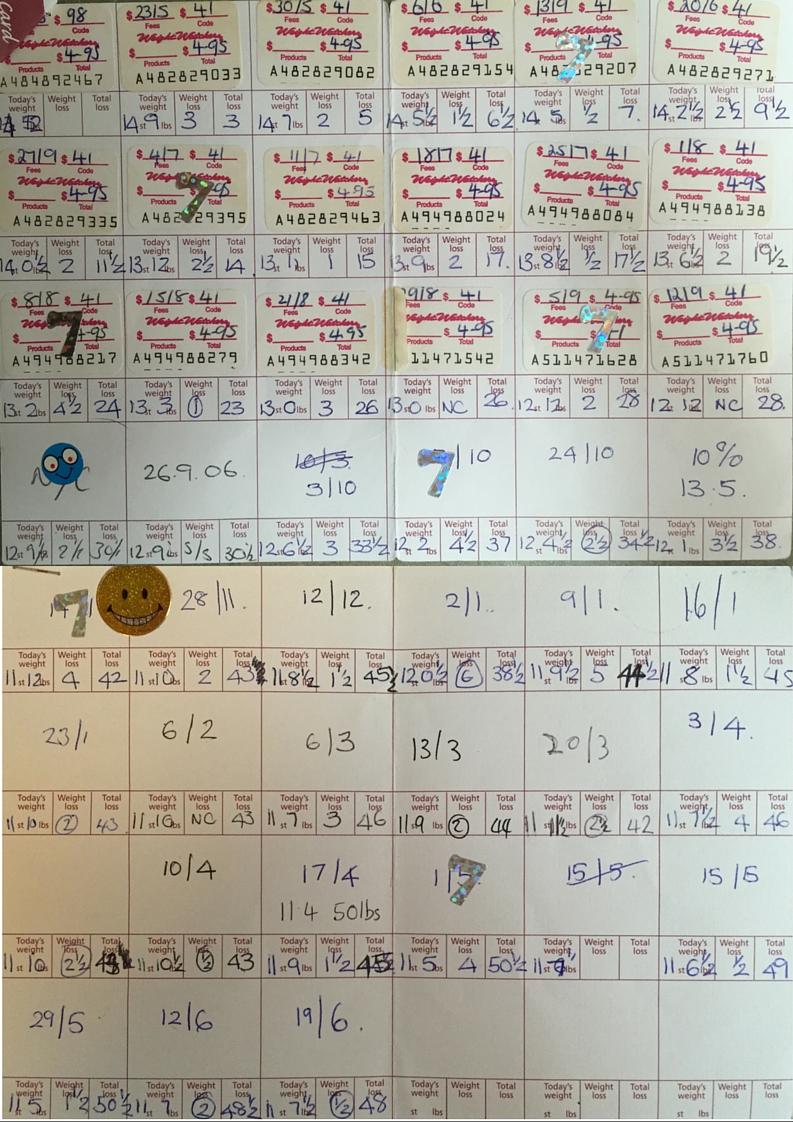 Card
$ 98 $ 23/5 $ 41 $ 30/5 $ 41 $ 6/6 $ 41 $ 13/9 $ 41 $ 20/6 $ 41
Code Fees Code Fees Code Fees Code Fees Code Fees Code
Weight Watchers Weight Watchers Weight Watchers Weight Watchers Weight Watchers
$ 4-95 $ $ 4-95 $ $ 4-95 $ $ 4-95 $ 7 4-95 $ $ 4-95
Products Total Products Total Products Total Products Total Products Total Products Total
A484892467 A482829033 A482829082 A482829154 A48 29207 A482829271
Today's weight Weight loss Total loss Today's weight Weight loss Total loss Today's weight Weight loss Total loss Today's weight Weight loss Total loss Today's weight Weight loss Total loss Today's weight Weight loss Total loss
14 st 9 lbs 3 3 14 st 7 lbs 2 5 14 st 5½ lbs 1½ 6½ 14 st 5 lbs ½ 7. 14 st 2½ lbs 2½ 9½
$ 27/9 $ 41 $ 4/7 $ 41 $ 11/7 $ 41 $ 18/7 $ 41 $ 25/7 $ 41 $ 1/8 $ 41
Fees Code Fees Code Fees Code Fees Code Fees Code Fees Code
Weight Watchers Weight Watchers Weight Watchers Weight Watchers Weight Watchers Weight Watchers
$ $ 4-95 $ 7 95 $ $ 4-95 $ $ 4-95 $ $ 4-95 $ $ 4-95
Products Total Products Total Products Total Products Total Products Total Products Total
A482829335 A482 29395 A482829463 A494988024 A494988084 A494988138
Today's weight Weight loss Total loss Today's weight Weight loss Total loss Today's weight Weight loss Total loss Today's weight Weight loss Total loss Today's weight Weight loss Total loss Today's weight Weight loss Total loss
14 st 0½ lbs 2 11½ 13 st 12 lbs 2½ 14 13 st 11 lbs 1 15 13 st 9 lbs 2 17. 13 st 8½ lbs ½ 17½ 13 st 6½ lbs 2 19½
$ 8/8 $ 41 $ 15/8 $ 41 $ 21/8 $ 41 29/8 $ 41 $ 5/9 $ 4-95 $ 12/9 $ 41
Fees Code Fees Code Fees Code Fees Code Fees Code Fees Code
Weight Watchers Weight Watchers Weight Watchers Weight Watchers Weight Watchers Weight Watchers
$ 7 4-95 $ $ 4-95 $ $ 4-95 $ 4-95 $ 7 41 $ $ 4-95
Products Total Products Total Products Total Products Total Products Total Products Total
A494988217 A494988279 A494988342 11471542 A511471628 A511471760
Today's weight Weight loss Total loss Today's weight Weight loss Total loss Today's weight Weight loss Total loss Today's weight Weight loss Total loss Today's weight Weight loss Total loss Today's weight Weight loss Total loss
13 st 2 lbs 4½ 24 13 st 3 lbs 1 23 13 st 0 lbs 3 26 13 st 0 lbs NC 26. 12 st 12 lbs 2 28 12 st 12 lbs NC 28.
N/C 26.9.06. 3/10 7 /10 24/10 10%
13.5.
Today's weight Weight loss Total loss Today's weight Weight loss Total loss Today's weight Weight loss Total loss Today's weight Weight loss Total loss Today's weight Weight loss Total loss Today's weight Weight loss Total loss
12 st 9½ lbs 2½ 30½ 12 st 9½ lbs S/S 30½ 12 st 6½ lbs 3 33½ 12 st 2 lbs 4½ 37 12 st 4½ lbs 2½ 34½ 12 st 1 lbs 3½ 38.
7 28/11. 12/12. 2/1. 9/1. 16/1
Today's weight Weight loss Total loss Today's weight Weight loss Total loss Today's weight Weight loss Total loss Today's weight Weight loss Total loss Today's weight Weight loss Total loss Today's weight Weight loss Total loss
11 st 12 lbs 4 42 11 st 10 lbs 2 43 11 st 8½ lbs 1½ 45½ 12 st 0½ lbs 6 38½ 11 st 9½ lbs 5 44½ 11 st 8 lbs 1½ 45
23/1 6/2 6/3 13/3 20/3 3/4.
Today's weight Weight loss Total loss Today's weight Weight loss Total loss Today's weight Weight loss Total loss Today's weight Weight loss Total loss Today's weight Weight loss Total loss Today's weight Weight loss Total loss
11 st 10 lbs 2 43 11 st 10 lbs NC 43 11 st 7 lbs 3 46 11 st 9 lbs 2 44 11 st 11½ lbs 2½ 42 11 st 7½ lbs 4 46
10/4 17/4 1/5 7 15/5. 15/5
11.4 50lbs
Today's weight Weight loss Total loss Today's weight Weight loss Total loss Today's weight Weight loss Total loss Today's weight Weight loss Total loss Today's weight Weight loss Total loss Today's weight Weight loss Total loss
11 st 10 lbs 2½ 11 st 10½ lbs ½ 43 11 st 9 lbs 1½ 11 st 5 lbs 4 50½ 11 st lbs 11 st 6½ lbs ½ 49
29/5 12/6 19/6.
Today's weight Weight loss Total loss Today's weight Weight loss Total loss Today's weight Weight loss Total loss Today's weight Weight loss Total loss Today's weight Weight loss Total loss Today's weight Weight loss Total loss
11 st 5 lbs 1½ 50½ 11 st 7 lbs 2 48½ 11 st 7½ lbs ½ 48 st lbs st lbs st lbs